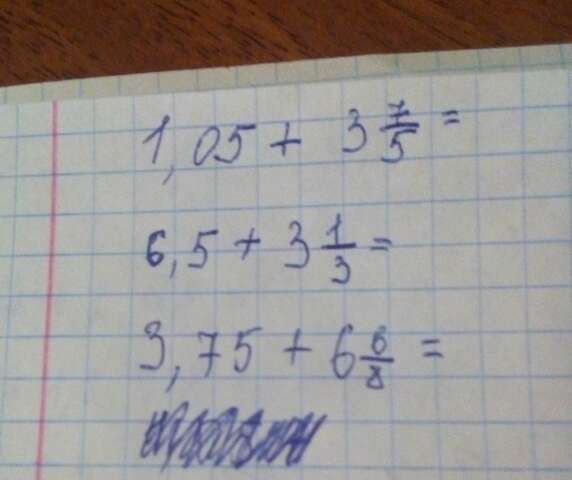 1,05 + 3 7/5 =
6,5 + 3 1/3 =
3,75 + 6 6/8 =